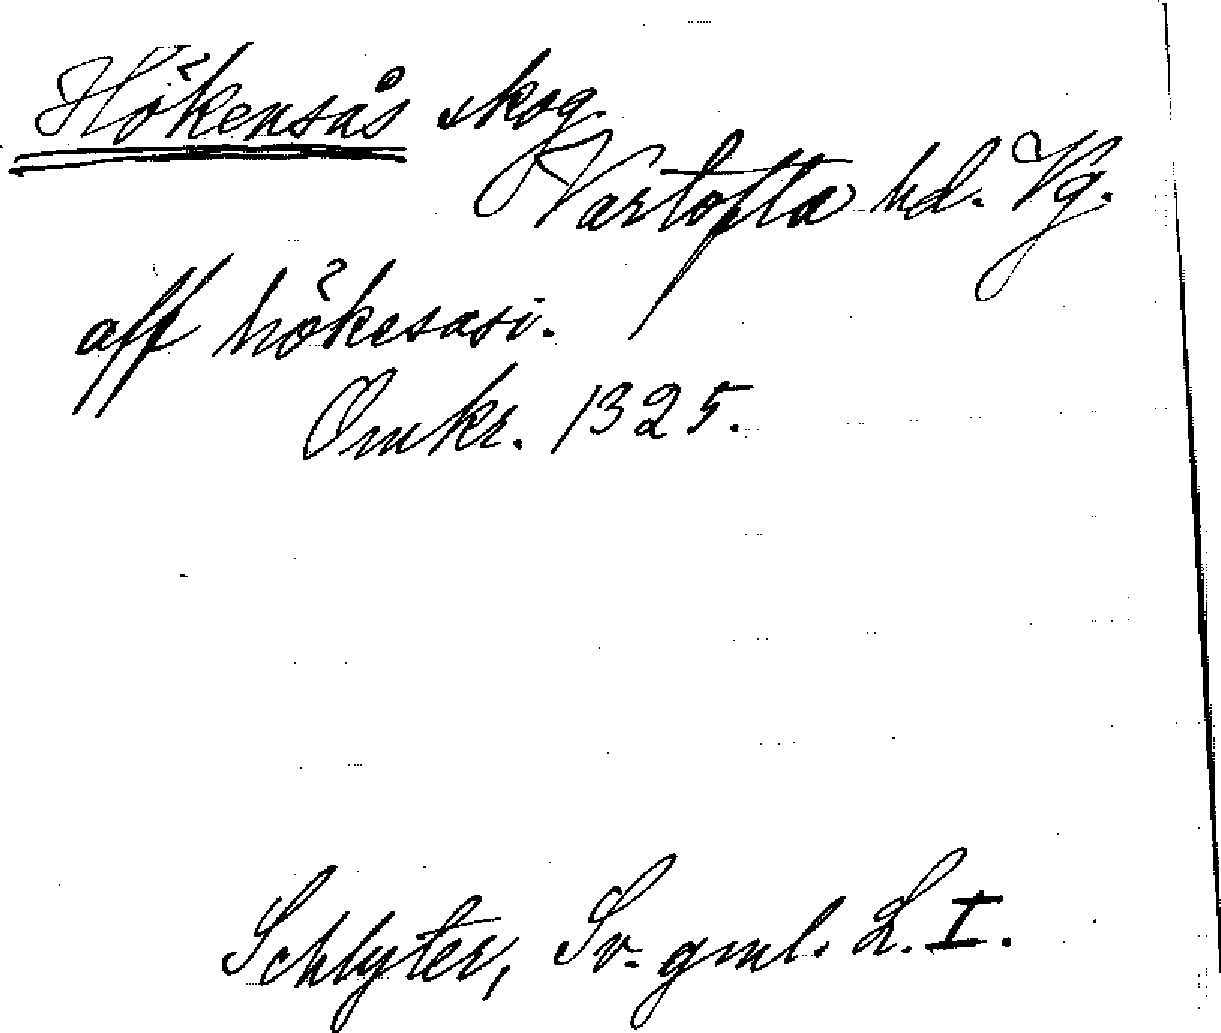 Hökensås skog
Vartofta hd. Vg.
aff hökesasi.
Omkr. 1325.
Schlyter, Sv. gml. L. I.